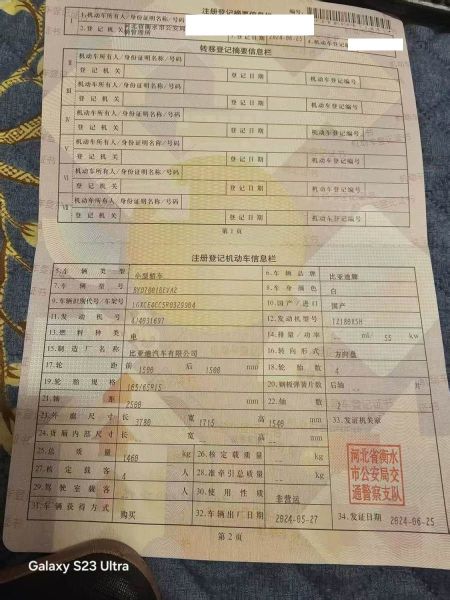 注册登记摘要信息栏
编号:
I
1.机动车所有人/身份证明名称/号码
2.登记机关 河北省衡水市公安局 3.登记日期 2024-06-25 4.机动车登记编号
转移登记摘要信息栏
III 机动车所有人/身份证明名称/号码
登记机关 登记日期 机动车登记编号
机动车所有人/身份证明名称/号码
IV 登记机关 登记日期 机动车登记编号
V 机动车所有人/身份证明名称/号码
登记机关 登记日期 机动车登记编号
VI 机动车所有人/身份证明名称/号码
登记机关 登记日期 机动车登记编号
VII 机动车所有人/身份证明名称/号码
登记机关 登记日期 机动车登记编号
第1页
注册登记机动车信息栏
5.车辆类型 小型轿车 6.车辆品牌 比亚迪牌
7.车辆型号 8.车身颜色 白
9.车辆识别代号/车架号 10.国产/进口 国产
11.发动机号 12.发动机型号 TZ180XSH
13.燃料种类 电 14.排量/功率 ml/ 55 kw
15.制造厂名称 比亚迪汽车有限公司 16.转向形式 方向盘
17.轮距 前 1500 后 1500 mm 18.轮胎数 4
19.轮胎规格 165/65R15 20.钢板弹簧片数 后轴 片
21.轴距 2500 mm 22.轴数 2
23.外廓尺寸 长 3780 宽 1715 高 1540 mm 33.发证机关章
24.货厢内部尺寸 长 宽 高 mm
25.总质量 1460 kg 26.核定载质量 kg
27.核定载客 4 人 28.准牵引总质量 kg
29.驾驶室载客 人 30.使用性质 非营运
31.车辆获得方式 购买 32.车辆出厂日期 2024-05-27 34.发证日期 2024-06-25
河北省衡水
市公安局交
通警察支队
第2页
Galaxy S23 Ultra